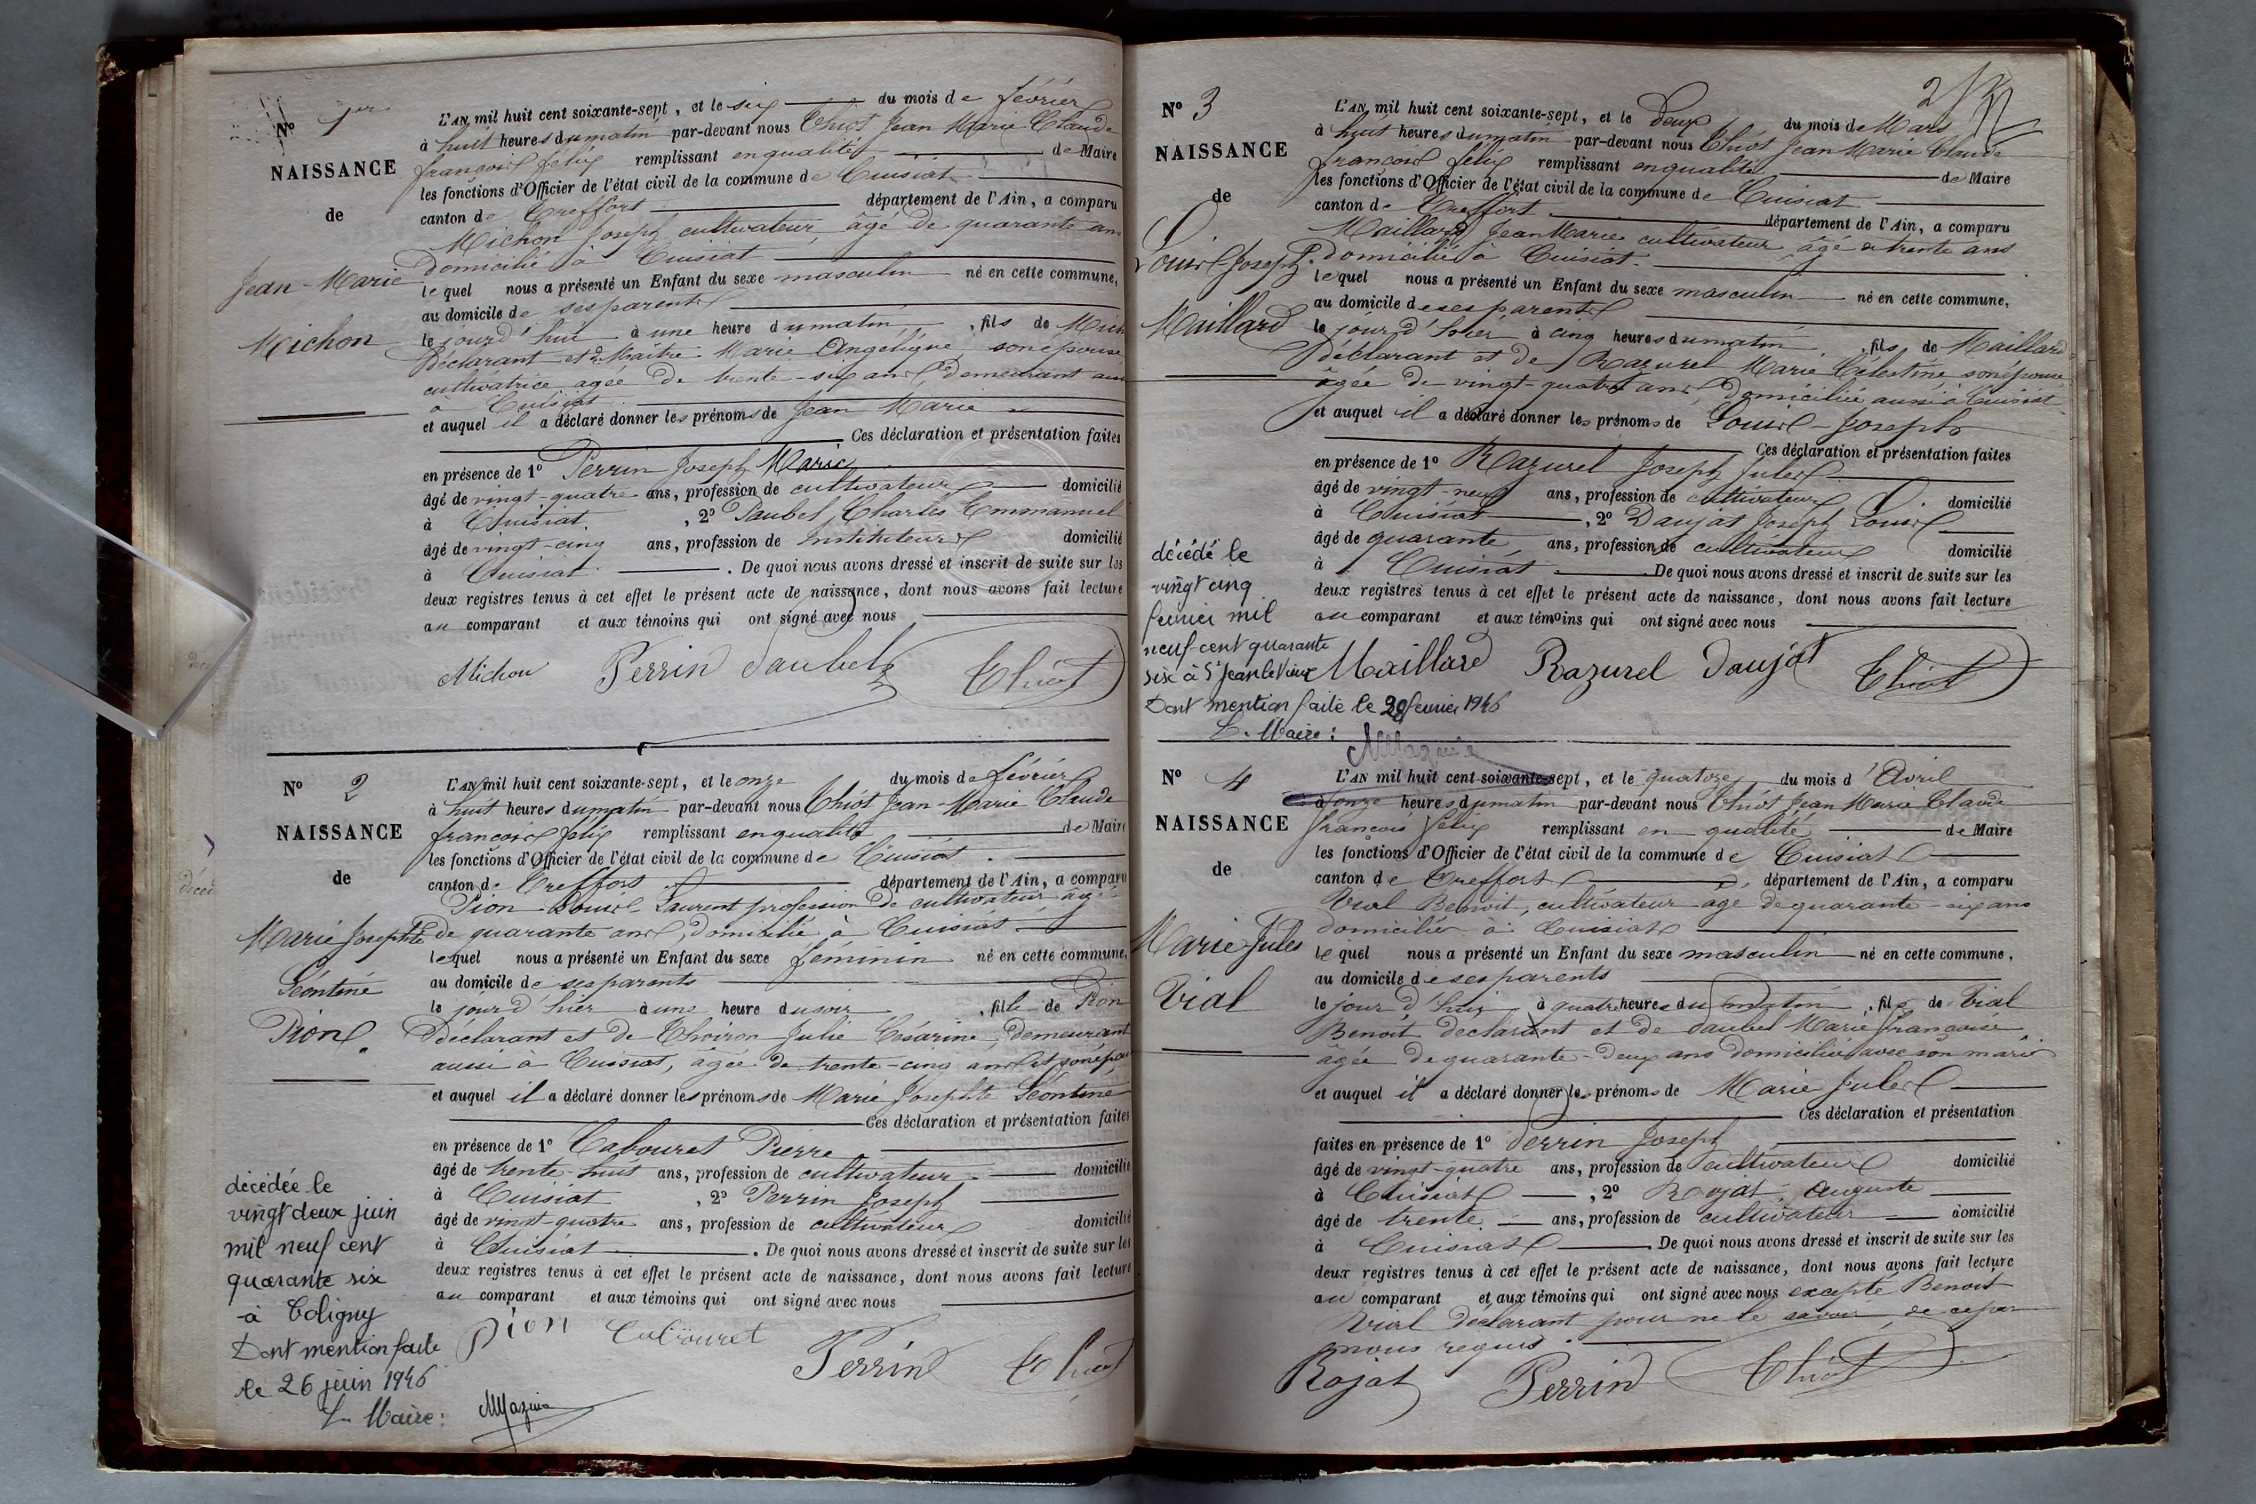 N° 1er
NAISSANCE
de
Jean-Marie
Michon
L'AN mil huit cent soixante-sept, et le six du mois de février
à huit heures du matin par-devant nous Thiot Jean Marie Claude
françois félix remplissant en qualité de Maire
les fonctions d'Officier de l'état civil de la commune de Cuisiat
canton de Treffort département de l'Ain, a comparu
Michon Joseph, cultivateur, âgé de quarante ans
domicilié à Cuisiat
lequel nous a présenté un Enfant du sexe masculin né en cette commune,
au domicile de ses parents
le jourd'hui à une heure du matin, fils de Mich
déclarant et de Maître Marie Angélique son épouse
cultivatrice agée de trente-six ans, demeurant aus
à Cuisiat
et auquel il a déclaré donner les prénoms de Jean Marie
Ces déclaration et présentation faites
en présence de 1° Perrin Joseph Marie
âgé de vingt-quatre ans, profession de cultivateur domicilié
à Cuisiat, 2° Paubel Charles Emmanuel
âgé de vingt-cinq ans, profession de Instituteur domicilié
à Cuisiat. De quoi nous avons dressé et inscrit de suite sur les
deux registres tenus à cet effet le présent acte de naissance, dont nous avons fait lecture
au comparant et aux témoins qui ont signé avec nous
Michon Perrin Thiot
N° 2
NAISSANCE
de
Marie Josephte
Léontine
Pion
L'AN mil huit cent soixante-sept, et le onze du mois de février
à huit heures du matin par-devant nous Thiot Jean-Marie Claude
françois félix remplissant en qualité de Maire
les fonctions d'Officier de l'état civil de la commune de Cuisiat
canton de Treffort département de l'Ain, a comparu
Pion Louis Laurent profession de cultivateur âgé
de quarante ans, domicilié à Cuisiat
lequel nous a présenté un Enfant du sexe féminin né en cette commune,
au domicile de ses parents
le jour d'hier à une heure du soir, fille de Pion
déclarant et de Thoiron Julie Césarine, demeurant
aussi à Cuisiat, agée de trente-cinq ans et son épou
et auquel il a déclaré donner les prénoms de Marie Josephte Léontine
Ces déclaration et présentation faites
en présence de 1° Cabouret Pierre
âgé de trente-huit ans, profession de cultivateur domicilié
à Cuisiat, 2° Perrin Joseph
âgé de vingt-quatre ans, profession de cultivateur domicilié
à Cuisiat. De quoi nous avons dressé et inscrit de suite sur les
deux registres tenus à cet effet le présent acte de naissance, dont nous avons fait lecture
au comparant et aux témoins qui ont signé avec nous
Pion Cabouret Perrin Thiot
décédée le
vingt deux juin
mil neuf cent
quarante six
à Coligny
Dont mention faite
le 26 juin 1946
Le Maire:
N° 3
NAISSANCE
de
Louis Joseph
Maillard
2
L'AN mil huit cent soixante-sept, et le deux du mois de Mars
à huit heures du matin par-devant nous Thiot Jean Marie Claude
françois félix remplissant en qualité de Maire
les fonctions d'Officier de l'état civil de la commune de Cuisiat
canton de Treffort département de l'Ain, a comparu
Maillard Jean Marie cultivateur, âgé de trente ans
domicilié à Cuisiat
lequel nous a présenté un Enfant du sexe masculin né en cette commune,
au domicile de ses parents
le jour d'hier à cinq heures du matin, fils de Maillard
déclarant et de Razurel Marie Célestine son épouse
âgée de vingt-quatre ans, domiciliée aussi à Cuisiat
et auquel il a déclaré donner les prénoms de Louis-Joseph
Ces déclaration et présentation faites
en présence de 1° Razurel Joseph Jules
âgé de vingt-neuf ans, profession de cultivateur domicilié
à Cuisiat, 2° Daujat Joseph Louis
âgé de quarante ans, profession de cultivateur domicilié
à Cuisiat De quoi nous avons dressé et inscrit de suite sur les
deux registres tenus à cet effet le présent acte de naissance, dont nous avons fait lecture
au comparant et aux témoins qui ont signé avec nous
Maillard Razurel Daujat Thiot
décédé le
vingt cinq
fevrier mil
neuf cent quarante
six à St Jean le Vieux
Dont mention faite le 28 fevrier 1946
Le Maire:
N° 4
NAISSANCE
de
Marie Jules
Vial
L'AN mil huit cent soixante-sept, et le quatorze du mois d'Avril
à onze heures du matin par-devant nous Thiot Jean Marie Claude
françois félix remplissant en qualité de Maire
les fonctions d'Officier de l'état civil de la commune de Cuisiat
canton de Treffort, département de l'Ain, a comparu
Vial Benoit, cultivateur agé de quarante-six ans
domicilié à Cuisiat
lequel nous a présenté un Enfant du sexe masculin né en cette commune,
au domicile de ses parents
le jour d'hui à quatre heures du matin, fils de Vial
Benoit déclarant et de Paubel Marie françoise
âgée de quarante-deux ans domiciliée avec son mari
et auquel il a déclaré donner les prénoms de Marie Jules
Ces déclaration et présentation
faites en présence de 1° Perrin Joseph
âgé de vingt-quatre ans, profession de cultivateur domicilié
à Cuisiat, 2° Rojat Auguste
âgé de trente ans, profession de cultivateur domicilié
à Cuisiat De quoi nous avons dressé et inscrit de suite sur les
deux registres tenus à cet effet le présent acte de naissance, dont nous avons fait lecture
au comparant et aux témoins qui ont signé avec nous excepté Benoit
Vial déclarant pour ne le savoir, de ce par
nous requis
Rojat Perrin Thiot